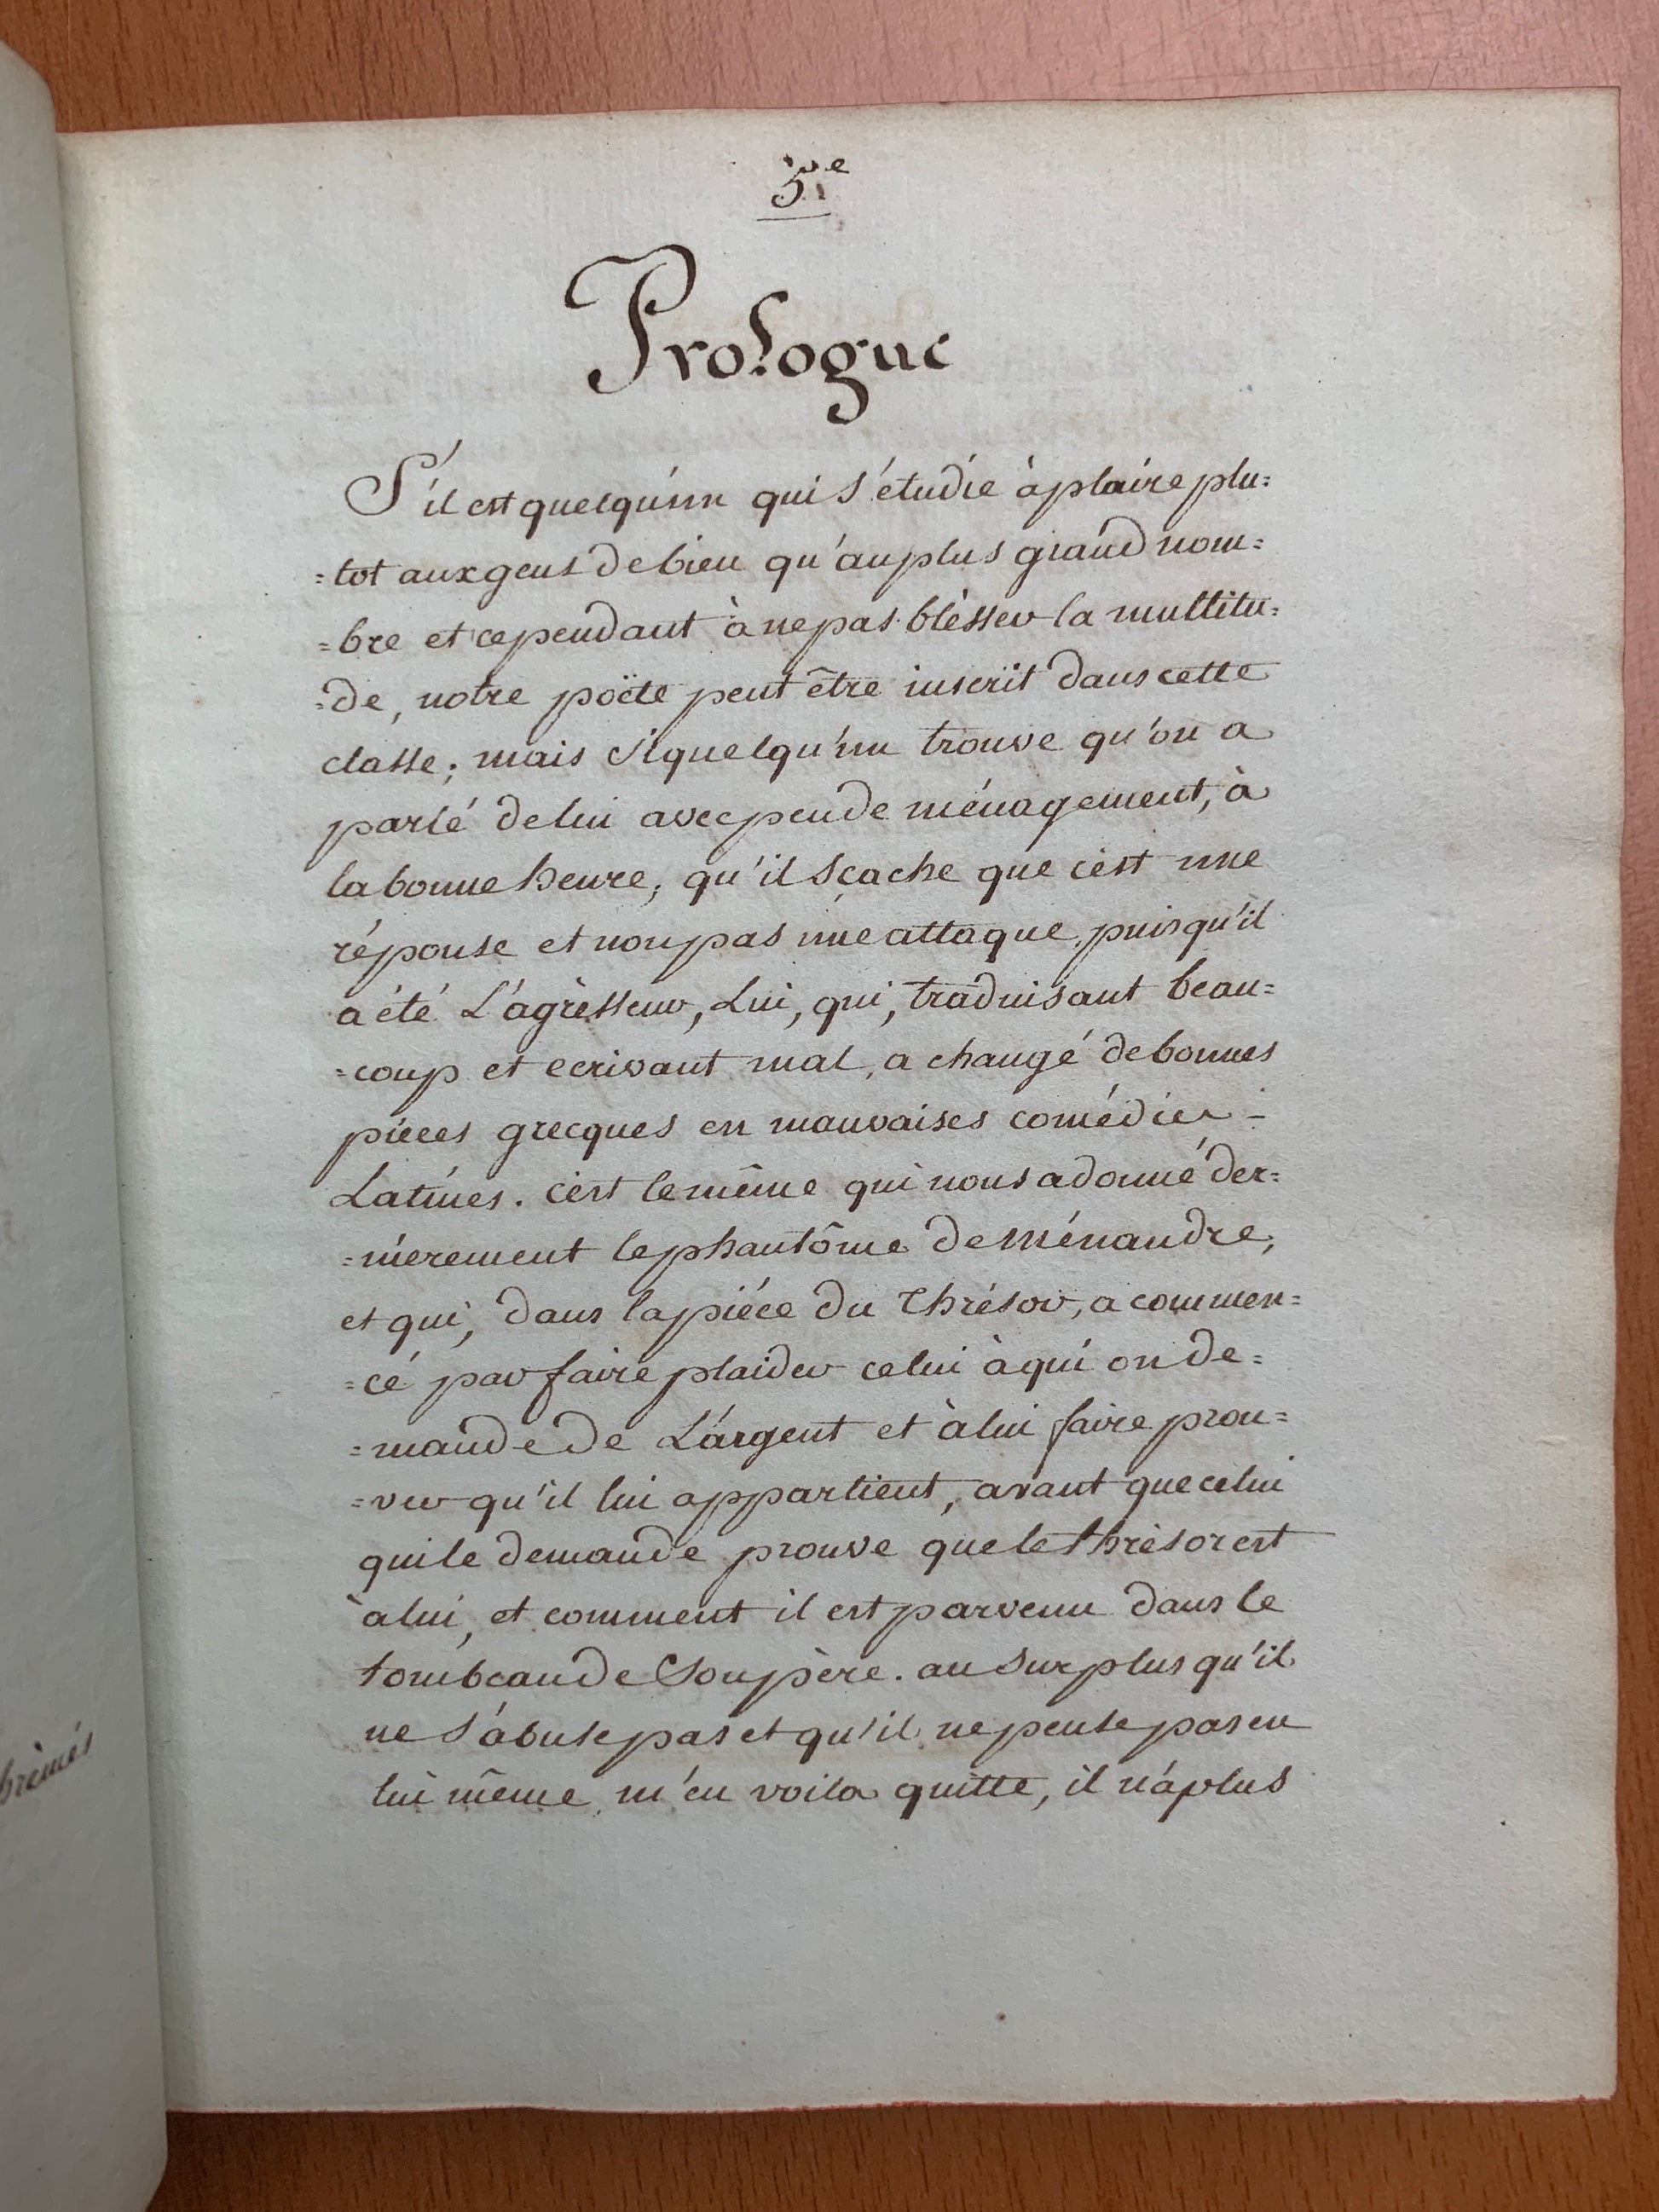 3e
Prologue
S'il est quelqu'un qui s'étudie à plaire plu=
=tot aux gens de bien qu'au plus grand nom=
=bre et cependant à ne pas blèsser la multitu=
=de, notre poëte peut être inscrit dans cette
classe; mais si quelqu'un trouve qu'on a
parlé de lui avec peu de ménagement, à
la bonne heure, qu'il sçache que c'èst une
réponse et non pas une attaque, puisqu'il
a été L'agrèsseur, Lui, qui, traduisant beau=
=coup et ecrivant mal, a changé de bonnes
pieces grecques en mauvaises comédies -
Latines. c'èst le même qui nous a donné der=
=nierement le phantôme de Ménandre,
et qui, dans la piéce du Thrésor, a commen=
=cé par faire plaider celui à qui on de=
=mande de L'argent et à lui faire prou=
=ver qu'il lui appartient, avant que celui
qui le demande prouve que le thrèsor est
à lui, et comment il est parvenu dans le
tombeau de son père. au surplus qu'il
ne s'abuse pas et qu'il ne pense pas en
lui même, m'en voila quitte, il n'a plus
brèmés